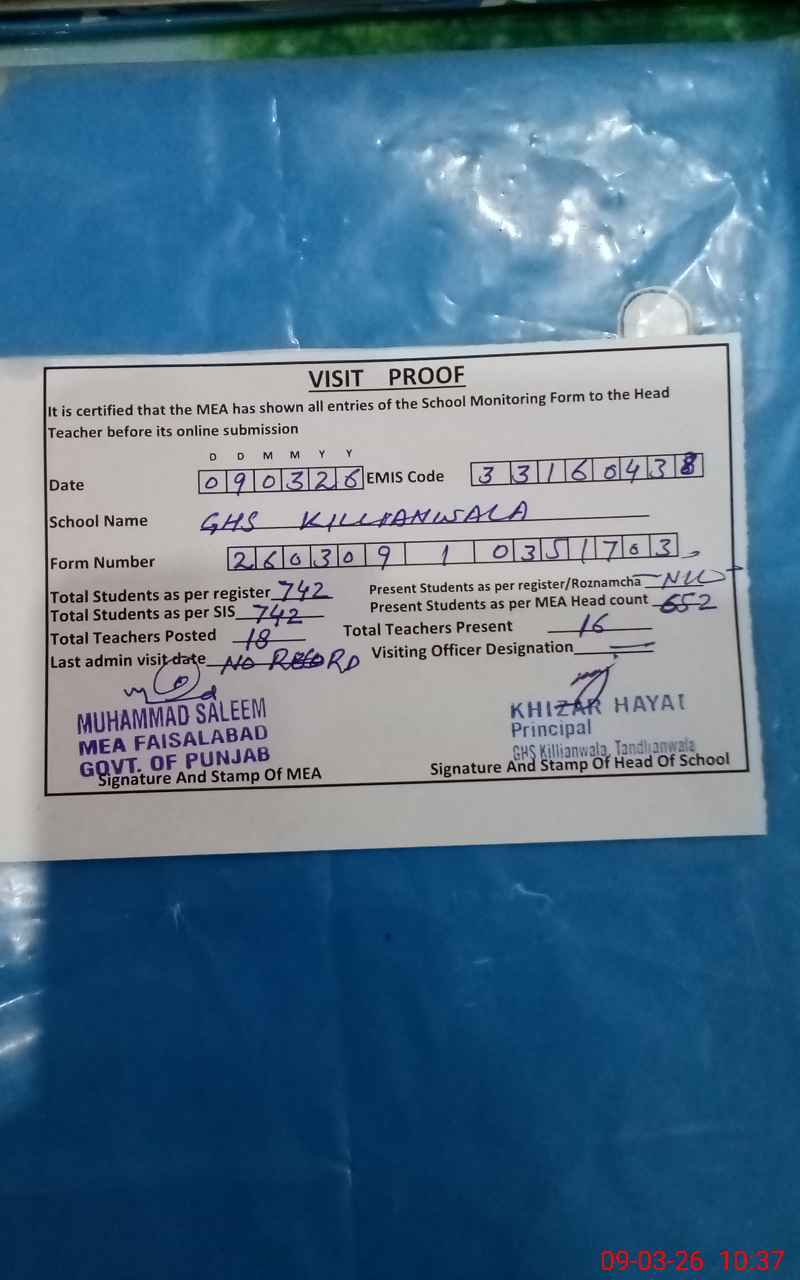 VISIT PROOF
It is certified that the MEA has shown all entries of the School Monitoring Form to the Head
Teacher before its online submission
D D M M Y Y
Date 090326 EMIS Code 33160438
School Name GHS KILLIANWALA
Form Number 260309 1 0351703
Total Students as per register 742 Present Students as per register/Roznamcha
Total Students as per SIS 742 Present Students as per MEA Head count 652
Total Teachers Posted 18 Total Teachers Present 16
Last admin visit date NO RECORD Visiting Officer Designation
MUHAMMAD SALEEM
MEA FAISALABAD
GOVT. OF PUNJAB
Signature And Stamp Of MEA
KHIZAR HAYAT
Principal
GHS Killianwala, Tandlianwala
Signature And Stamp Of Head Of School
09-03-26 10:37